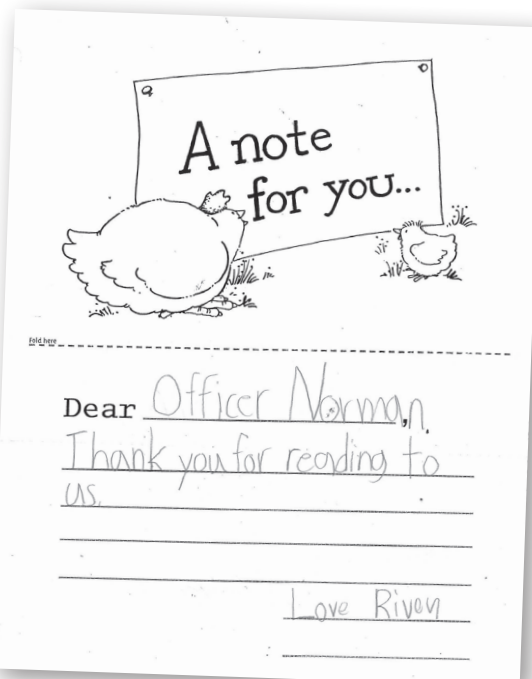 A note
for you...
Fold here
Dear Officer Norman,
Thank you for reading to
us.
Love Riven